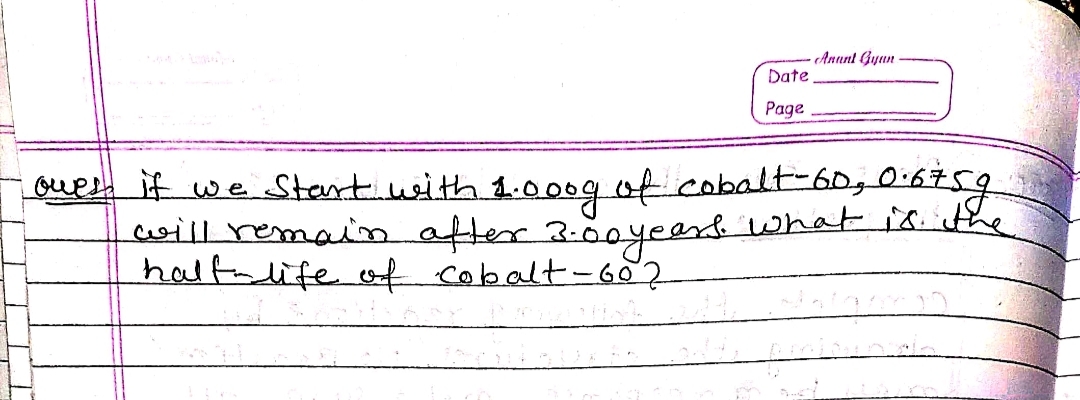 Anant Gyan
Date
Page
Ques if we start with 1.000g of cobalt-60, 0.675g
will remain after 3.00years. what is the
half-life of cobalt-60?